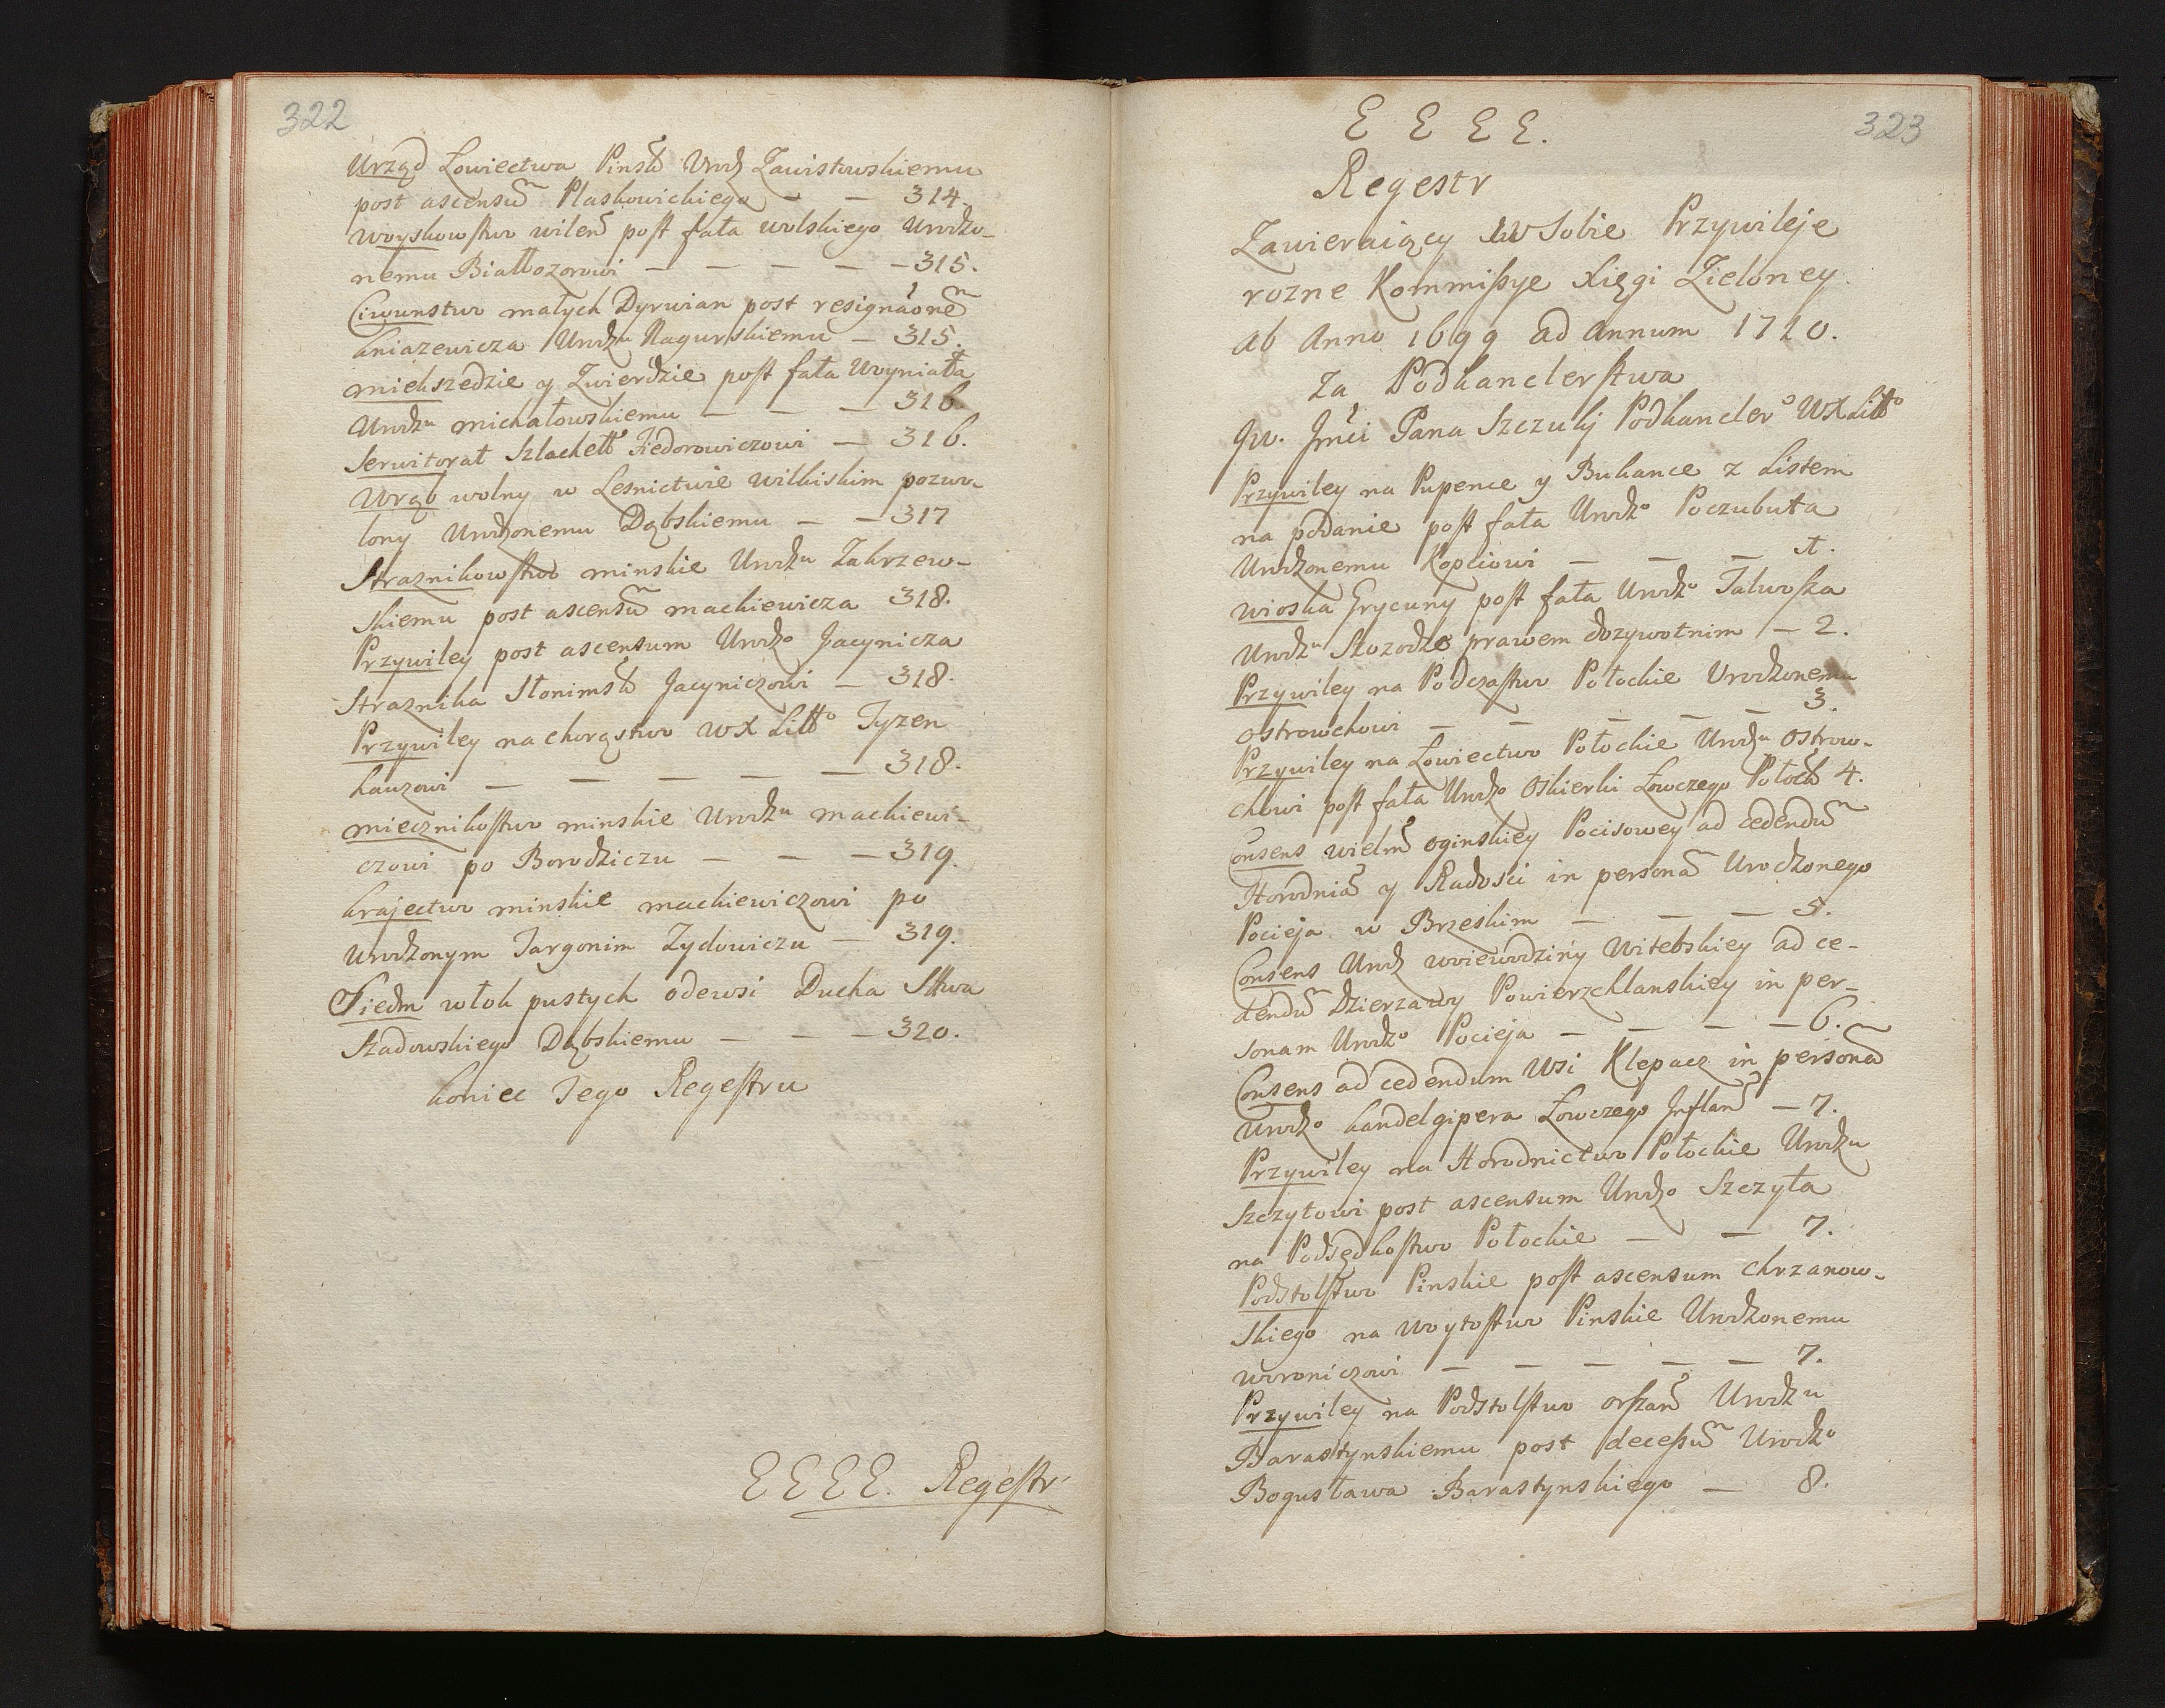 322
Urząd Łowiectwa Pinsk Urodz Zawistowskiemu
post ascensu Plaskowickiego — — 314.
Woyskowstwo wilen post fata wolskiego Urodzo-
nemu Białłozorowi — — — — — 315.
Ciwunstwo małych Dyrwian post resignaone
kniazewicza Urodzu Nagurskiemu — 315.
mickszedzie y Zwierdzie post fata Woyniata
Urodzu michałowskiemu — — — 316.
Serwitorat Szlachett Fedorowiczowi — 316.
Wrąb wolny w Lesnictwie wilkiskim pozwo-
lony Urodzonemu Dąbskiemu — — 317
Straznikowstwo minskie Urodzu Zakrzew-
skiemu post ascensu mackiewicza 318.
Przywiley post ascensum Urodzo Jacynicza
Straznika Słonimsk Jacyniczowi — 318.
Przywiley na chorąstwo WX Litto Tyzen
hauzowi — — — — — 318.
miecznikostwo minskie Urodzu mackiewi-
czowi po Borodziczu — — — 319.
krajectwo minskie mackiewiczowi po
urodzonym Jargonim Zydowiczu — 319.
Siedm włok pustych odewsi Ducha Sttwa
Szadowskiego Dąbskiemu — — — 320.
koniec Tego Regestru
E E E E. Regestr
323
E E E E.
Regestr
Zawieraiący w Sobie Przywileje
rozne Kommissye Xięgi Zieloney
ab Anno 1699 ad Annum 1710.
Za Podkanclerstwa
Jw. Jmci Pana Szczuki Podkanclero WXLitto
Przywiley na Pupence y Bukance z Listem
na podanie post fata Urodzo Poczubuta
Urodzonemu Kopciowi — — — 1.
wioska Grycuny post fata Urodzo Talwosza
Urodzu Skozodze prawem dozywotnim — 2.
Przywiley na Podczastwo Połockie Urodzonemu
Ostrowchowi — — — — — 3.
Przywiley na Łowiectwo Połockie Urodzu Ostrow-
chowi post fata Urodzo Oskierki Łowczego Połock 4.
Consens wielm Oginskiey Pocisowey ad cedendu
Horodnia y Radosci in persona Urodzonego
Pocieja w Brzeskim — — — 5.
Consens Urodz woiewodziny Witebskiey ad ce-
dendu Dzierzawy Powierzchlanskiey in per-
sonam Urodzo Pocieja — — — — 6.
Consens ad cedendum Wsi Klepacz in persona
Urodzo handelgipera Łowczego Inflan — 7.
Przywiley na Horodnictwo Połockie Urodzu
Szczytowi post ascensum Urodzo Szczyta
na Podsędkostwo Połockie — — 7.
Podstolstwo Pinskie post ascensum Chrzanow-
skiego na Woytostwo Pinskie Urodzonemu
woroniczowi — — — — — 7.
Przywiley na Podstolstwo orszan Urodzu
Barastynskiemu post decessu Urodzo
Bogusława Barastynskiego — 8.